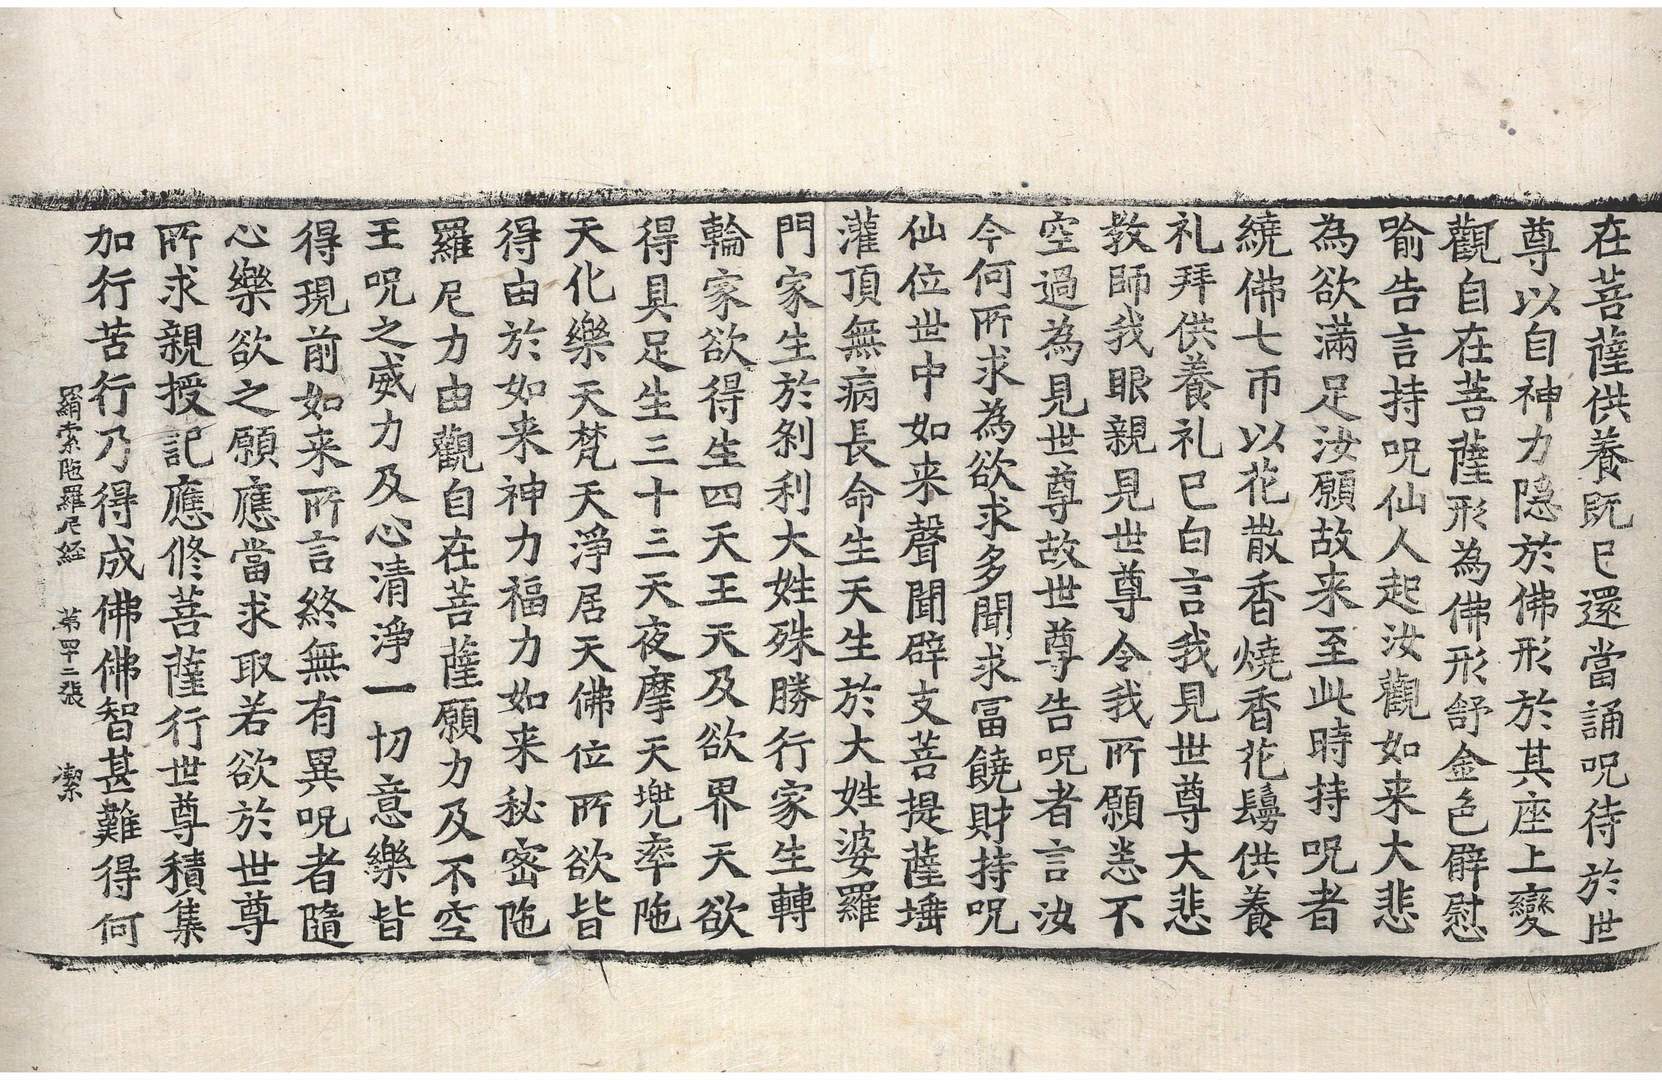 在菩薩供養既已還當誦呪待於世
尊以自神力隱於佛形於其座上變
觀自在菩薩形為佛形舒金色臂慰
喻告言持呪仙人起汝觀如来大悲
為欲滿足汝願故来至此時持呪者
繞佛七帀以花散香燒香花鬘供養
礼拜供養礼已白言我見世尊大悲
教師我眼親見世尊令我所願恙不
空過為見世尊故世尊告呪者言汝
今何所求為欲求多聞求冨饒財持呪
仙位世中如来聲聞辟支菩提薩埵
灌頂無病長命生天生於大姓婆羅
門家生於剎利大姓殊勝行家生轉
輪家欲得生四天王天及欲界天欲
得具足生三十三天夜摩天兠率陁
天化樂天梵天淨居天佛位所欲皆
得由於如来神力福力如来秘密陁
羅尼力由觀自在菩薩願力及不空
王呪之威力及心清淨一切意樂皆
得現前如来所言終無有異呪者隨
心樂欲之願應當求取若欲於世尊
所求親授記應修菩薩行世尊積集
加行苦行乃得成佛佛智甚難得何
羂索陁羅尼經　第四十二張　潔